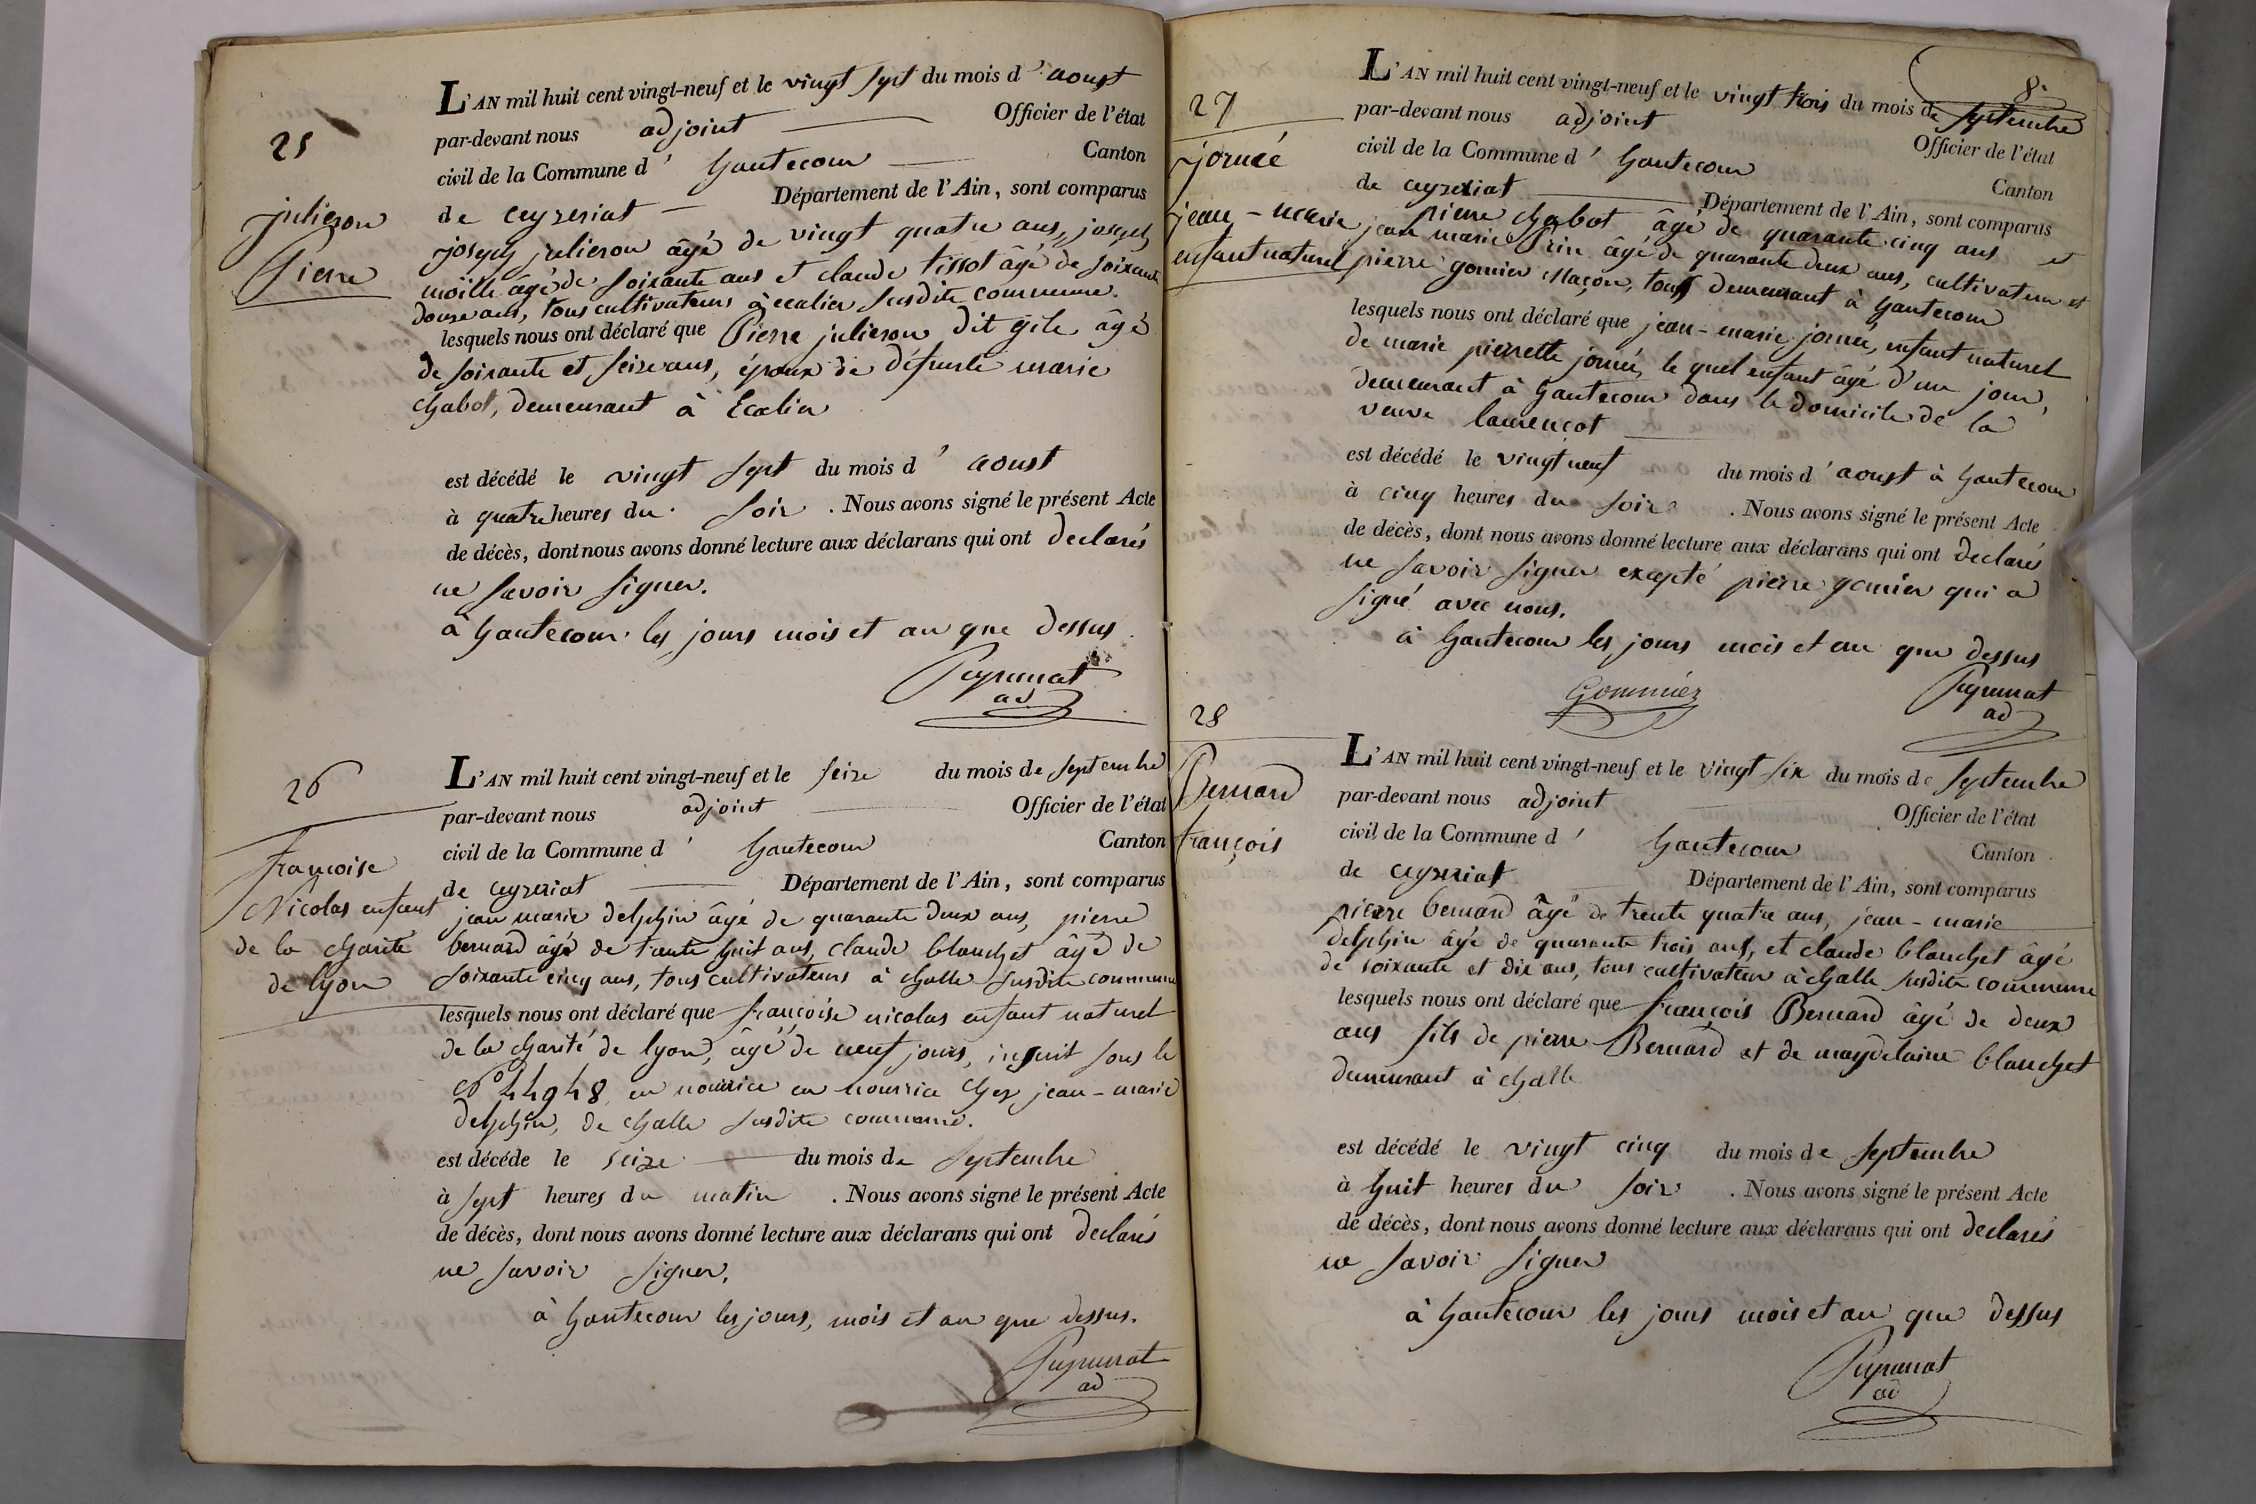 25
julieron
Pierre
L'AN mil huit cent vingt-neuf et le vingt sept du mois d'aoust
par-devant nous adjoint Officier de l'état
civil de la Commune d'hautecour Canton
de ceyzeriat Département de l'Ain, sont comparus
joseph julieron âgé de vingt quatre ans, joseph
moille âgé de soixante ans et claude tissot âgé de soixante
douze ans, tous cultivateurs à ecalier susdite commune.
lesquels nous ont déclaré que Pierre julieron dit gile âgé
de soixante et seize ans, époux de défunte marie
chabot, demeurant à Ecalier
est décédé le vingt sept du mois d'aoust
à quatre heures du soir. Nous avons signé le présent Acte
de décès, dont nous avons donné lecture aux déclarans qui ont declarés
ne savoir signer.
à hautecour les jours mois et an que dessus
ad
26
francoise
Nicolas enfant
de la charité
de lyon
L'AN mil huit cent vingt-neuf et le seize du mois de septembre
par-devant nous adjoint Officier de l'état
civil de la Commune d'hautecour Canton
de ceyzeriat Département de l'Ain, sont comparus
jean marie delphin âgé de quarante deux ans, pierre
bernard âgé de trente huit ans, claude blanchet âgé de
soixante cinq ans, tous cultivateurs à challe susdite commune
lesquels nous ont déclaré que francoise nicolas enfant naturel
de la charité de lyon, âgé de neuf jours, inscrit sous le
N° 44948, en nourrice en nourrice chez jean-marie
delphin, de challe susdite commune.
est décédé le seize du mois de septembre
à sept heures du matin. Nous avons signé le présent Acte
de décès, dont nous avons donné lecture aux déclarans qui ont declarés
ne savoir signer.
à hautecour les jours, mois et an que dessus.
ad
8.
27
jornée
jean-marie
enfant naturel
L'AN mil huit cent vingt-neuf et le vingt trois du mois de septembre
par-devant nous adjoint Officier de l'état
civil de la Commune d'hautecour Canton
de ceyzeriat Département de l'Ain, sont comparus
pierre chabot âgé de quarante cinq ans et
jean marie Prin âgé de quarante deux ans, cultivateur et
pierre gomier maçon, tous demeurant à hautecour
lesquels nous ont déclaré que jean-marie jornée, enfant naturel
de marie pierrette jornée, le quel enfant âgé d'un jour,
demeurant à hautecour dans le domicile de la
veuve laurençot
est décédé le vingt neuf du mois d'aoust à hautecour
à cinq heures du soir. Nous avons signé le présent Acte
de décès, dont nous avons donné lecture aux déclarans qui ont declaré
ne savoir signer excepté pierre gomier qui a
signé avec nous.
à hautecour les jours mois et an que dessus
Gommier
ad
28
Bernard
françois
L'AN mil huit cent vingt-neuf et le vingt six du mois de septembre
par-devant nous adjoint Officier de l'état
civil de la Commune d'hautecour Canton
de ceyzeriat Département de l'Ain, sont comparus
pierre bernard âgé de trente quatre ans, jean-marie
delphin âgé de quarante trois ans, et claude blanchet âgé
de soixante et dix ans, tous cultivateur à challe susdite commune
lesquels nous ont déclaré que françois Bernard âgé de deux
ans fils de pierre Bernard et de maydelaine blanchet
demeurant à challe
est décédé le vingt cinq du mois de septembre
à huit heures du soir. Nous avons signé le présent Acte
de décès, dont nous avons donné lecture aux déclarans qui ont declarés
ne savoir signer
à hautecour les jours mois et an que dessus
ad